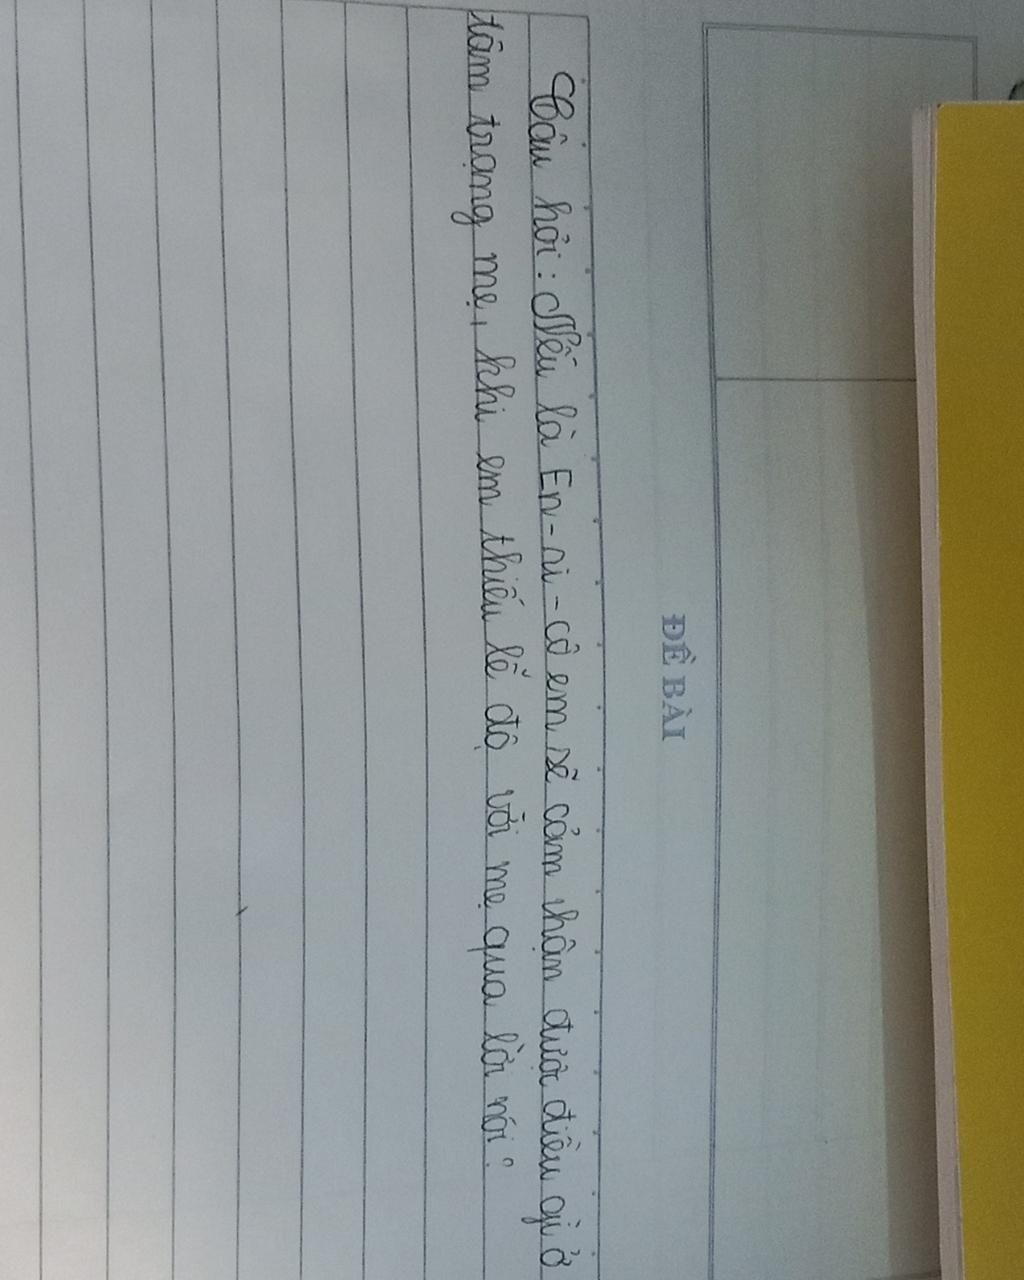 ĐỀ BÀI
Câu hỏi: Nếu là En-ri-cô em sẽ cảm nhận được điều gì ở
tâm trạng mẹ, khi em thiếu lễ độ với mẹ qua lời nói?